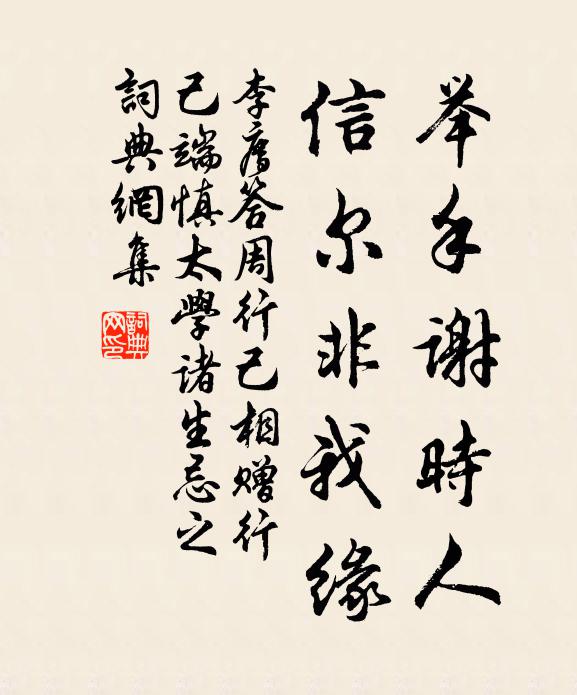 举手谢時人
信尔非我缘
李廌答周行己相赠行
己端慎太學诸生忌之
詞典網集
詞典
网印